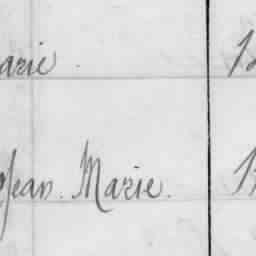 arie
Jean. Marie.